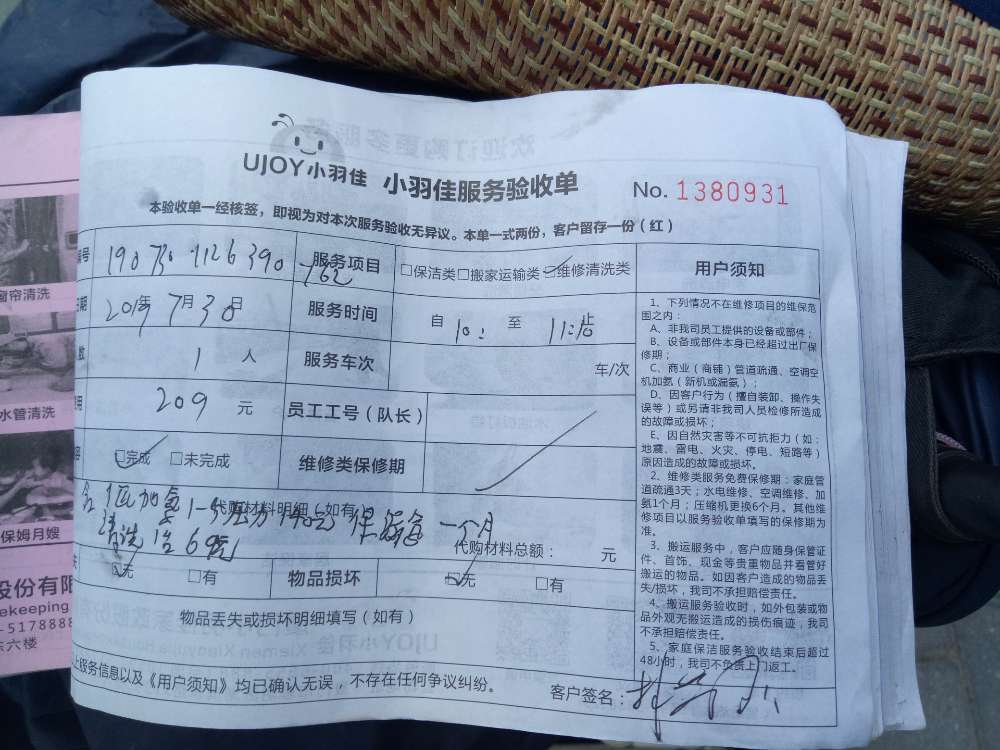 UJOY小羽佳 小羽佳服务验收单 No. 1380931
本验收单一经核签，即视为对本次服务验收无异议。本单一式两份，客户留存一份（红）
号 190730 1126390 服务项目 □保洁类□搬家运输类☑维修清洗类
期 2019年7月30日 服务时间 自 10: 至 11:
数 1 人 服务车次 车/次
用 209 元 员工工号（队长）
☑完成 □未完成 维修类保修期
代购材料明细（如有）
1匹加氨 1-5压力 140元 保 一个月
清洗1台69元
代购材料总额： 元
☑无 □有 物品损坏 ☑无 □有
物品丢失或损坏明细填写（如有）
上服务信息以及《用户须知》均已确认无误，不存在任何争议纠纷。
客户签名：
用户须知
1、下列情况不在维修项目的维保范
围之内：
A、非我司员工提供的设备或部件；
B、设备或部件本身已经超过出厂保
修期；
C、商业（商铺）管道疏通、空调空
机加氨（新机或漏氨）；
D、因客户行为（擅自装卸、操作失
误等）或另请非我司人员检修所造成
的故障或损坏；
E、因自然灾害等不可抗拒力（如：
地震、雷电、火灾、停电、短路等）
原因造成的故障或损坏。
2、维修类服务免费保修期：家庭管
道疏通3天；水电维修、空调维修、加
氨1个月；压缩机更换6个月。其他维
修项目以服务验收单填写的保修期为
准。
3、搬运服务中，客户应随身保管证
件、首饰、现金等贵重物品并看管好
搬运的物品。如因客户造成的物品丢
失/损坏，我司不承担赔偿责任。
4、搬运服务验收时，如外包装或物
品外观无搬运造成的损伤痕迹，我司
不承担赔偿责任。
5、家庭保洁服务验收结束后超过
48小时，我司不负责上门返工。
窗帘清洗
水管清洗
保姆月嫂
股份有限
ekeeping
-5178888
东六楼